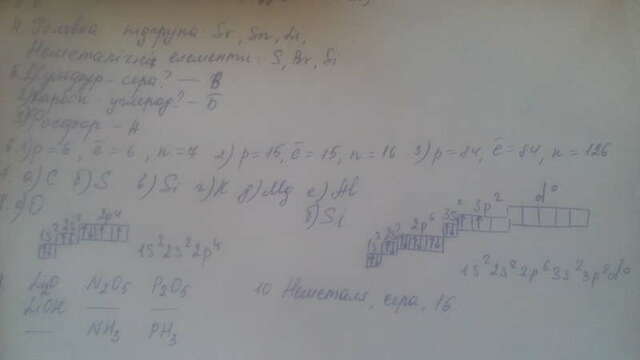 4. Головна підгрупа: Sr, Sn,
Неметалічні елементи: S, Br, Si
5. 1) Сульфур - сера? — В
2) Карбон углерод? - Б
3) Фосфор - А
6. 1) p = 6, ē = 6, n = 7 2) p = 15, ē = 15, n = 16 3) p = 84, ē = 84, n = 126
а) C б) S в) Si г) K д) Mg е) Al
8. а) O
б) Si
1s² 2s² 2p⁴
1s² 2s² 2p⁶ 3s² 3p² d⁰
1s²2s²2p⁴
1s²2s²2p⁶3s²3p²d⁰
Li₂O N₂O₅ P₂O₅
LiOH — —
— NH₃ PH₃
10 Неметали, сера, 16